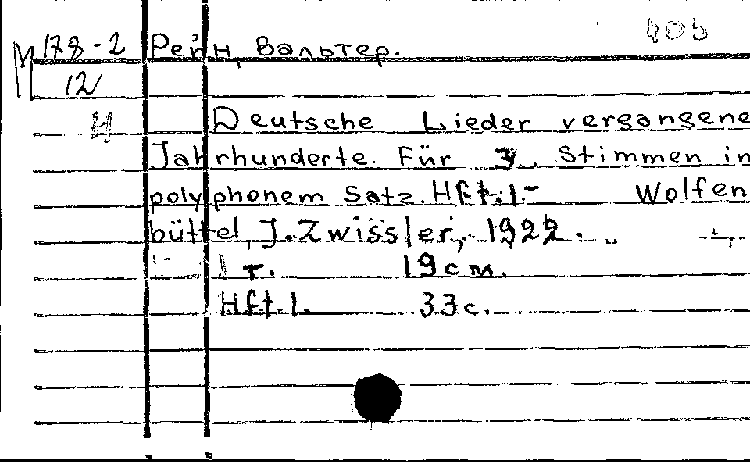 М 178-2 Рейн, Вальтер.
12
Deutsche Lieder vergangene
Jahrhunderte. Für 3. Stimmen in
polyphonem Satz. Hft.1- Wolfen
büttel, J. Zwissler, 1922.
1 т. 19см.
Hft.1. 33с.